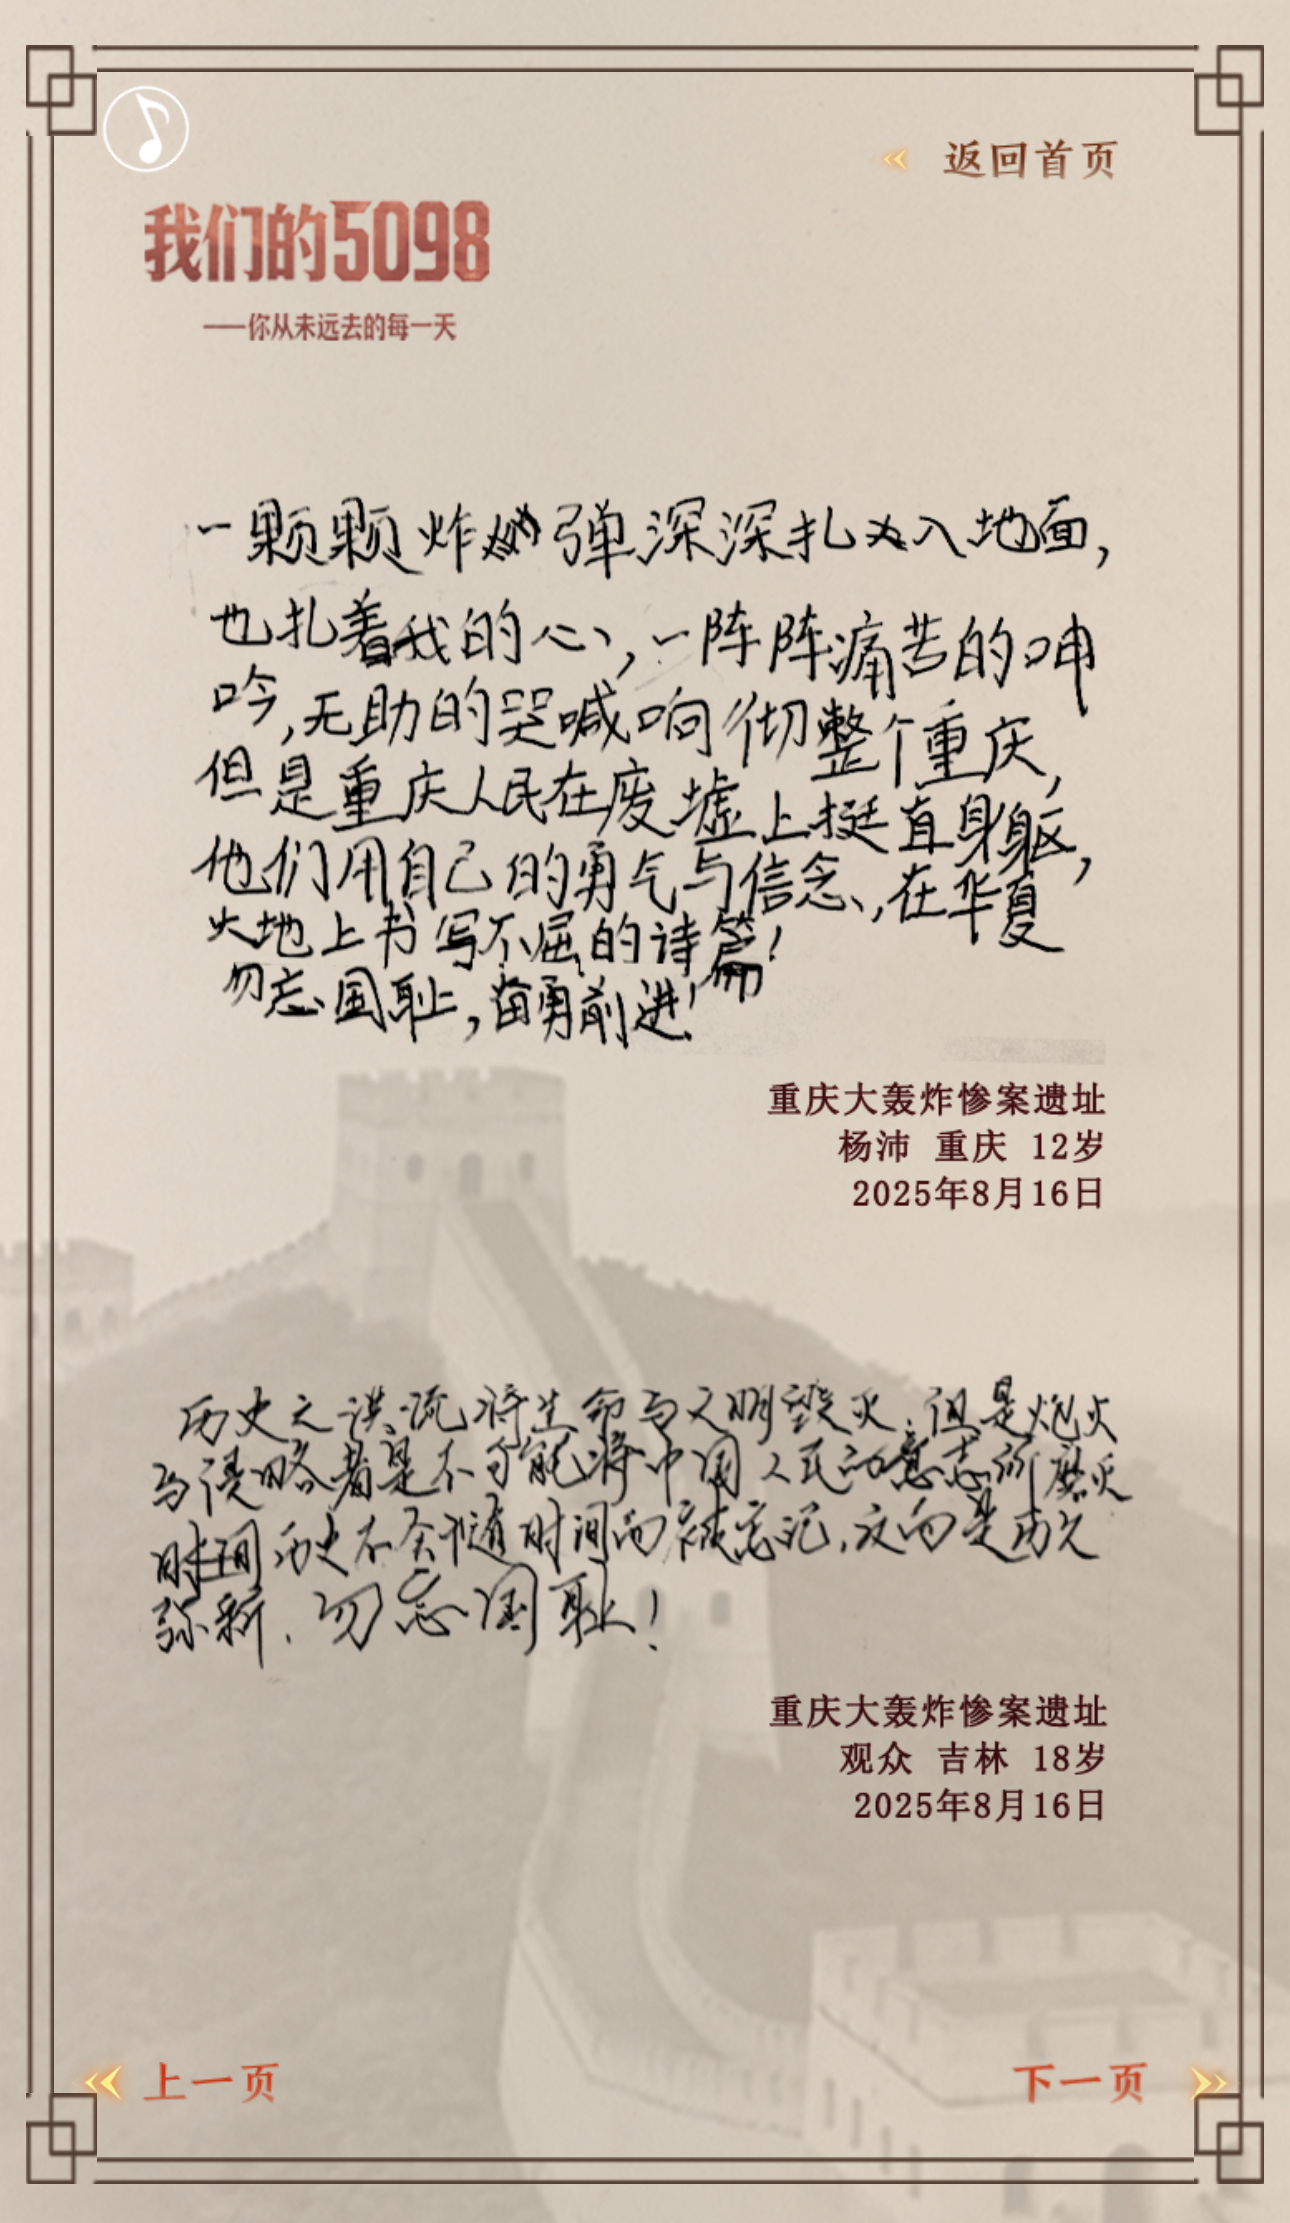 返回首页
我们的5098
——你从未远去的每一天
一颗颗炸弹深深扎入地面,
也扎着我的心,一阵阵痛苦的呻
吟,无助的哭喊响彻整个重庆,
但是重庆人民在废墟上挺直身躯,
他们用自己的勇气与信念,在华夏
大地上书写不屈的诗篇!
勿忘国耻,奋勇前进!
重庆大轰炸惨案遗址
杨沛 重庆 12岁
2025年8月16日
历史之洪流将生命与文明毁灭.但是炮火
与侵略者是不可能将中国人民的意志所磨灭
历史不会随时间而被忘记,反而是历久
弥新.勿忘国耻!
重庆大轰炸惨案遗址
观众 吉林 18岁
2025年8月16日
上一页
下一页